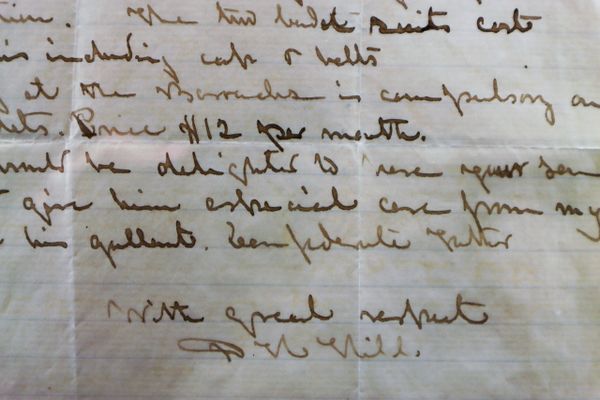 The two cadet suits cost
including cap & belts
at the Barracks is compulsory on
Price $12 per month.
would be delighted to have your son
give him especial care from my
his gallant. Confederate father
With great respect
D H Hill.